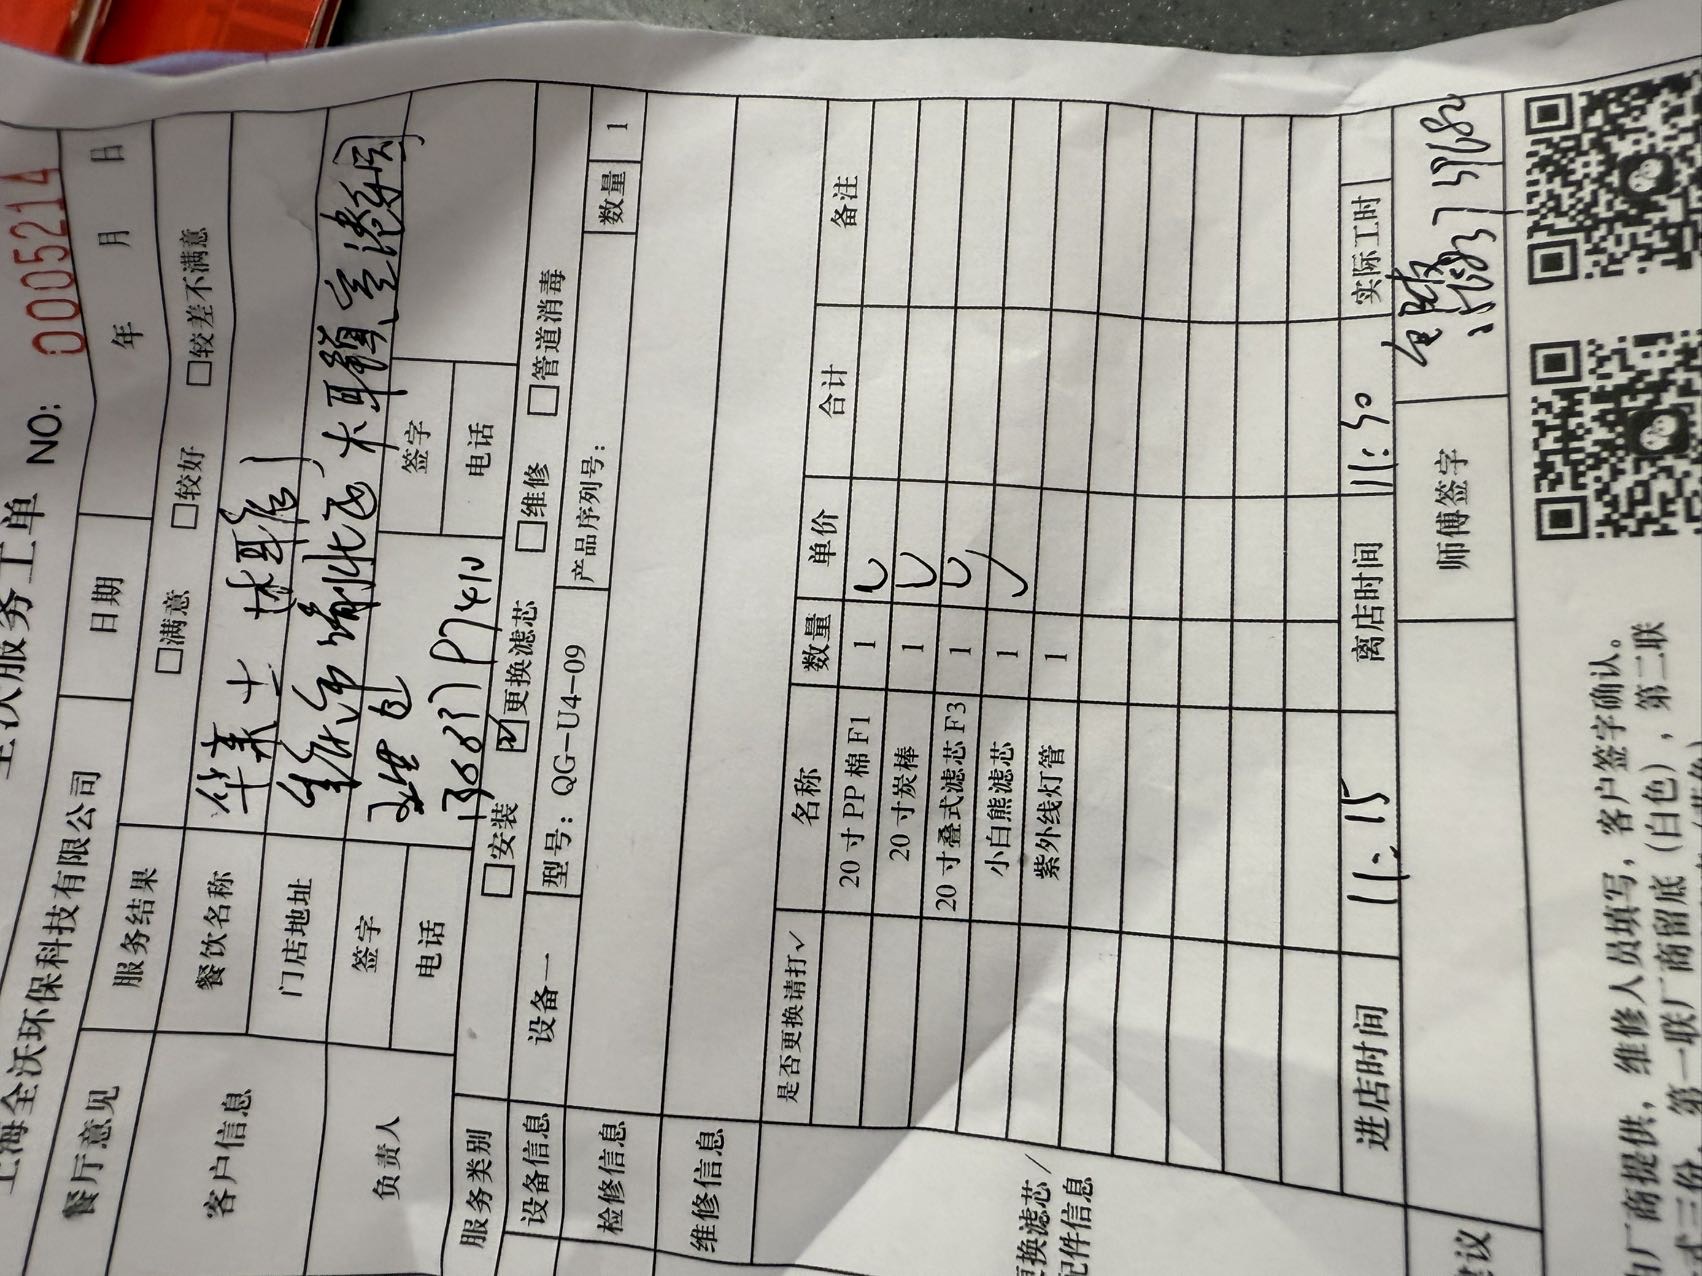 全沃服务工单 NO: 0005214
上海全沃环保科技有限公司 日期 年 月 日
餐厅意见 服务结果 □满意 □较好 □较差不满意
客户信息 餐饮名称 华莱士
门店地址
负责人 签字 签字
电话 电话
服务类别 □安装 ☑更换滤芯 □维修 □管道消毒
设备信息 设备一 型号：QG-U4-09 产品序列号： 数量 1
检修信息
维修信息
更换滤芯/
配件信息
是否更换请打√ 名称 数量 单价 合计 备注
20寸PP棉F1 1
20寸炭棒 1
20寸叠式滤芯F3 1
小白熊滤芯 1
紫外线灯管 1
进店时间 11:15 离店时间 11:30 实际工时
建议 师傅签字
由厂商提供，维修人员填写，客户签字确认。
式三份，第一联厂商留底（白色），第二联